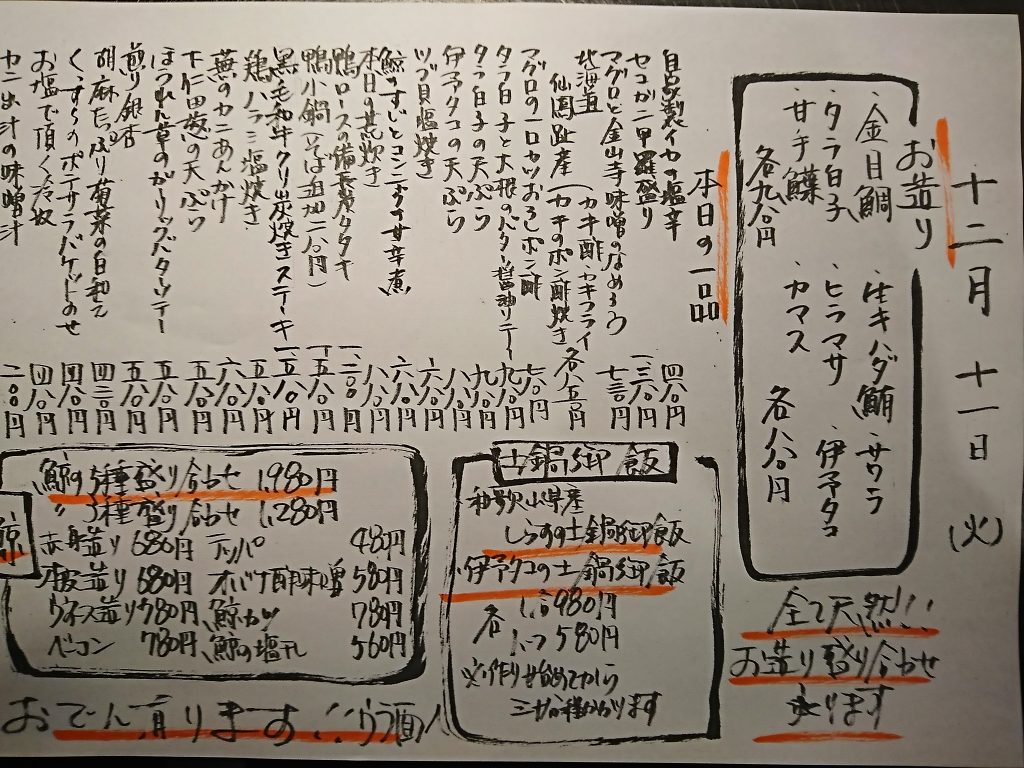 十二月十一日(火)
お造り
・金目鯛 ・生キハダ鮪 ・サワラ
・タラ白子 ・ヒラマサ ・伊予タコ
・甘手鰈 ・カマス
各九八〇円 各八八〇円
全て天然!!
お造り盛り合わせ
承ります
本日の一品
自家製イカの塩辛 四八〇円
セコガニ甲羅盛り 一、三八〇円
マグロと金山寺味噌のなめろう 七三〇円
北海道 仙鳳趾産(カキ酢・カキフライ
カキのポン酢炊き 各八五〇円
マグロの一口カツおろしポン酢 七八〇円
タラ白子と大根のバター醤油ソテー 九八〇円
タラ白子の天ぷら 九八〇円
伊予タコの天ぷら 八八〇円
ツブ貝塩焼き
鯨のすじとコンニャクの甘辛煮
本日の荒炊き
鴨ロースの備長炭タタキ
鴨小鍋(そば追加二八〇円)
黒毛和牛クリ炭焼きステーキ 一、五八〇円
鶏ハラミ塩焼き 五八〇円
蕪のカニあんかけ 六八〇円
下仁田葱の天ぷら 五八〇円
ほうれん草のガーリックバターソテー 五八〇円
煎り銀杏 五八〇円
胡麻たっぷり菊菜の白和え 四三〇円
くんすらのポテサラバケットのせ 四八〇円
お塩で頂く冷奴 四八〇円
カニ出汁の味噌汁 二〇〇円
土鍋御飯
和歌山県産
しらすの土鍋御飯
伊予タコの土鍋御飯
各 1合980円
1/2 580円
※作り始めてから
三十分程かかります
鯨
鯨の5種盛り合わせ 1,980円
〃 3種盛り合わせ 1,280円
赤身造り 680円 テッパ 480円
本皮造り 680円 オバケ酢味噌 580円
ウネス造り 780円 鯨カツ 780円
ベーコン 780円 鯨の塩干 560円
おでん有ります!!(ウラ面)